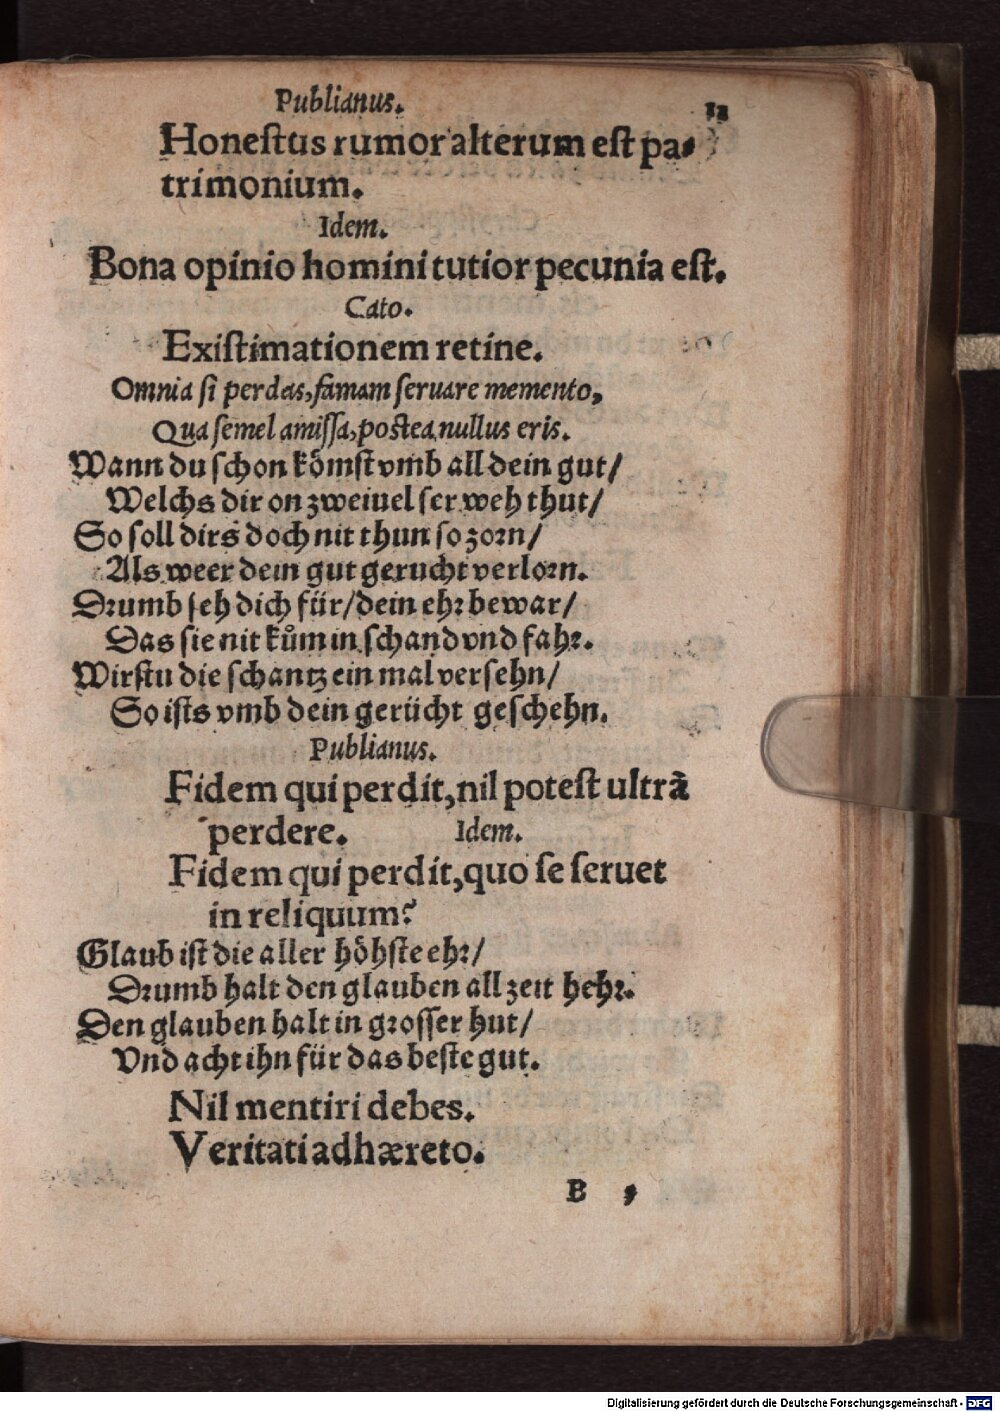 Publianus.
12
Honeſtus rumor alterum eſt pa-
trimonium.
Idem.
Bona opinio homini tutior pecunia eſt.
Cato.
Exiſtimationem retine.
Omnia ſi perdas, famam ſeruare memento,
Qua ſemel amiſſa, postea nullus eris.
Wann du ſchon koͤmſt vmb all dein gut/
Welchs dir on zweiuel ſer weh thut/
So ſoll dirs doch nit thun ſo zorn/
Als weer dein gut gerucht verlorn.
Drumb ſeh dich für/ dein ehr bewar/
Das ſie nit kům in ſchand vnd fahr.
Wirſtu die ſchantz ein mal verſehn/
So iſts vmb dein gerücht geſchehn.
Publianus.
Fidem qui perdit, nil poteſt ultrà
perdere. Idem.
Fidem qui perdit, quo ſe ſeruet
in reliquum?
Glaub iſt die aller hoͤhſte ehr/
Drumb halt den glauben all zeit hehr.
Den glauben halt in groſſer hut/
Vnd acht ihn für das beſte gut.
Nil mentiri debes.
Veritati adhæreto.
B ,
Digitalisierung gefördert durch die Deutsche Forschungsgemeinschaft - DFG